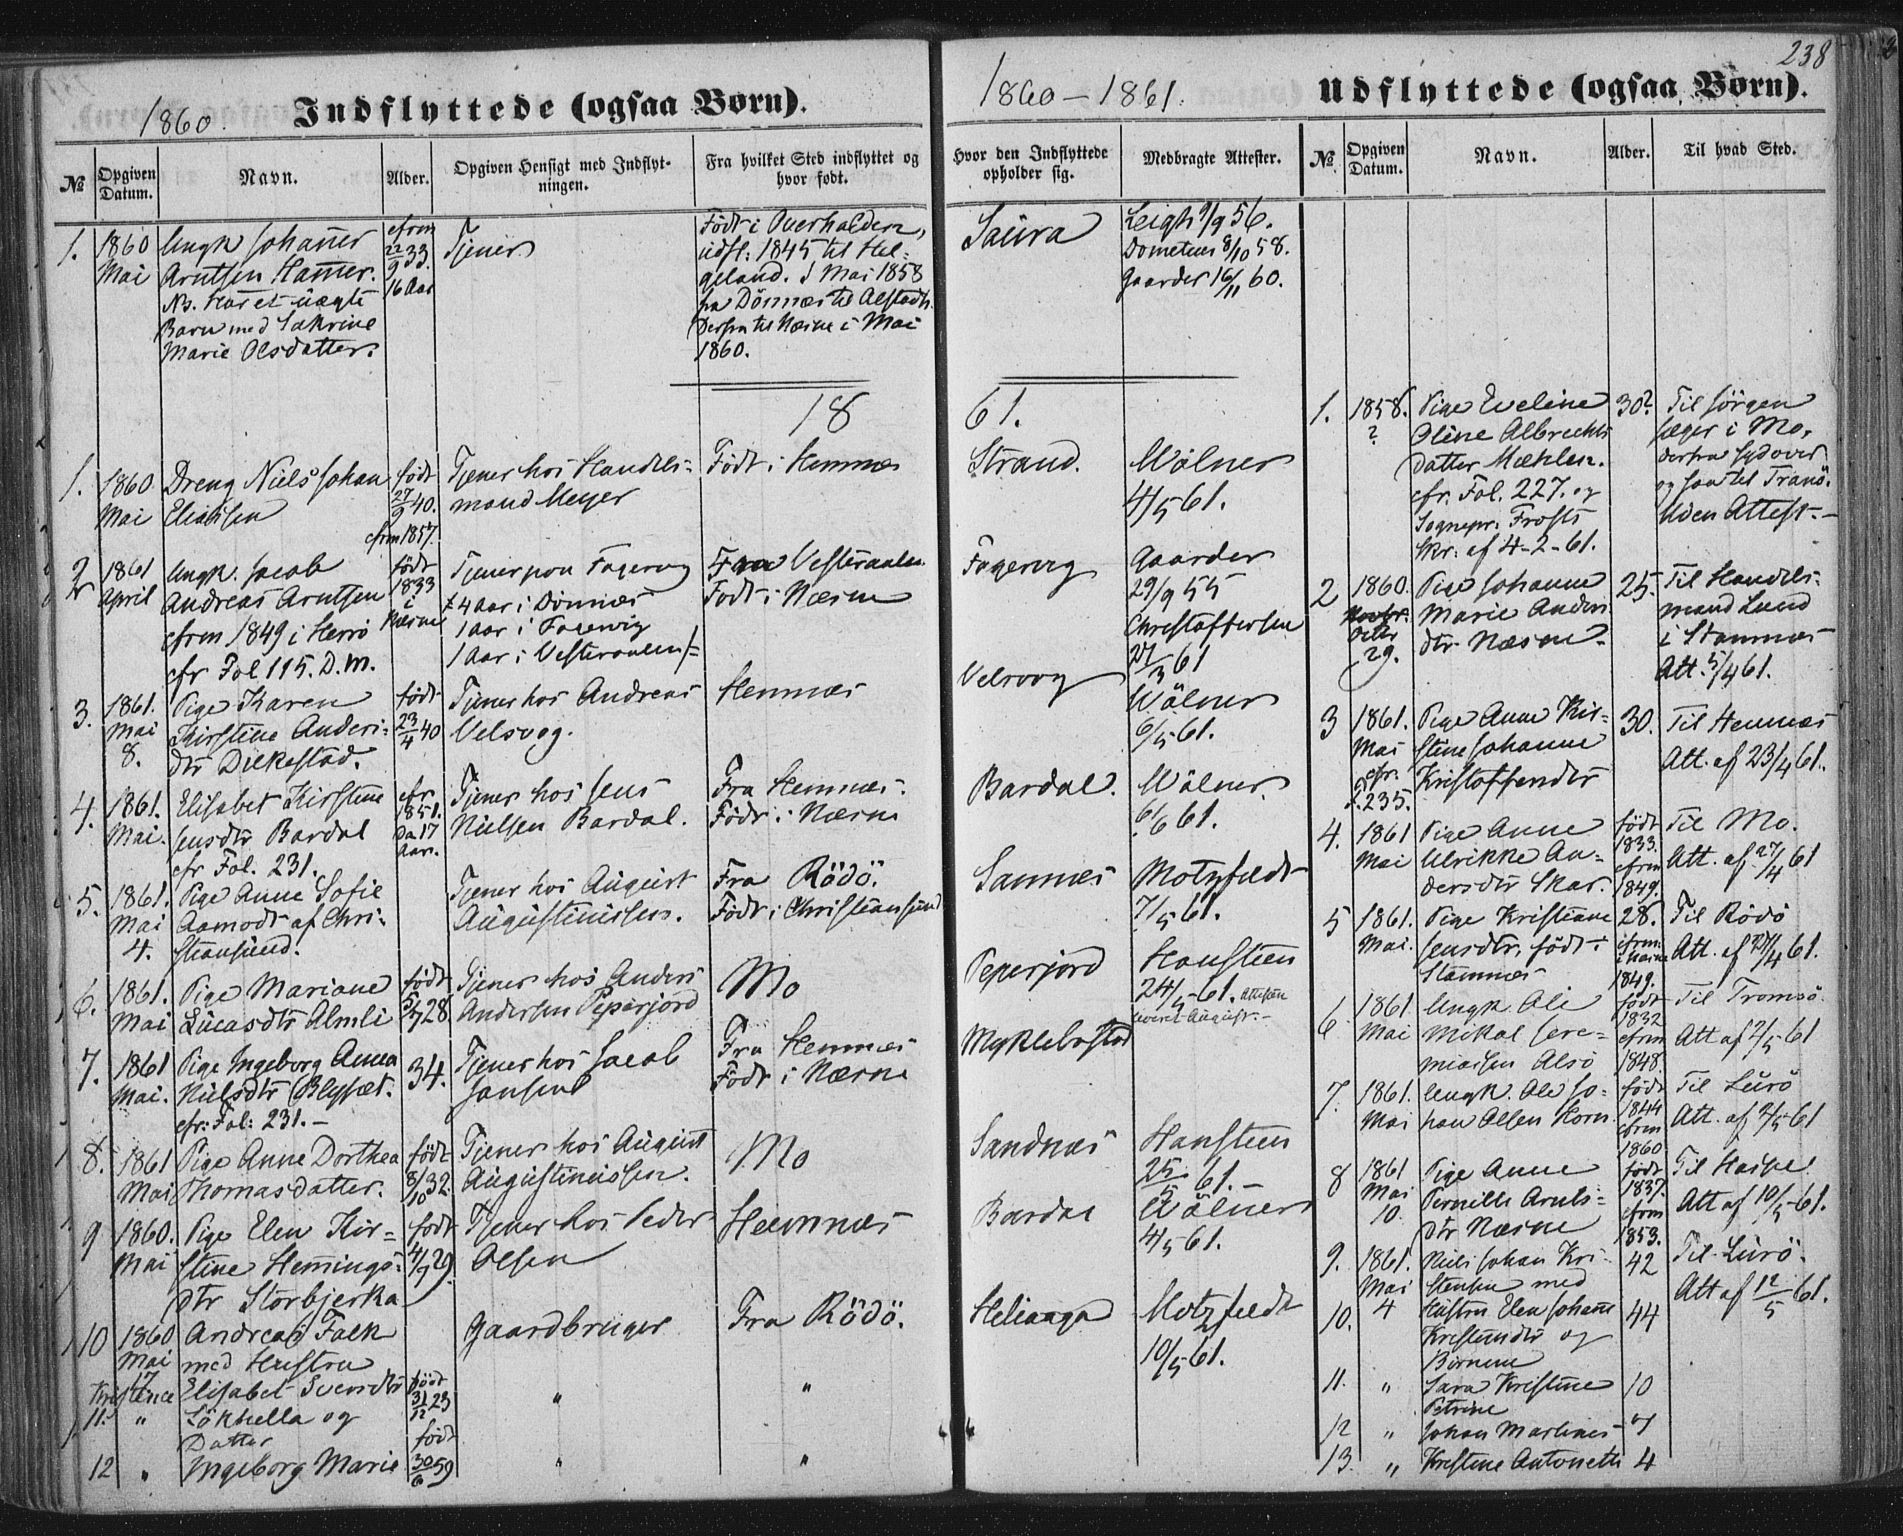 238
1860.
Indflyttede (ogsaa Børn).
№
Opgiven Datum.
Navn.
Alder.
Opgiven Hensigt med Indflyt-
ningen.
Fra hvilket Sted indflyttet og
hvor født.
1.
1860
Mai
Ungk Johannes
Arntsen Hammer.
Nb. Har et uægte
Barn med
Marie Olsdatter.
cfrm
22/9 33.
16 Aar
Tjener
Født i Overhalden,
udfl: 1845 til Hel-
geland. I Mai 1858
fra Dønnæs til Alstadh.
Derfra til Næsne i Mai
1860.
18
1.
1860
Mai
Dreng Niels Johan
Eliassen
født
27/9 40.
cfrm 1857.
Tjener hos Handels-
mand Meyer
Født i Hemnæs
2
1861
April
Ungk. Jacob
Andreas Arntsen
cfrm 1849 i Herrø
cfr Fol 115. D. M.
født
1833
i
Næsne
Tjener paa Fagervig
4 Aar i Dønnæs
1 Aar i Fagervig
1 Aar i Vesteraalen
Fra Vesteraalen.
Født i Næsne
3.
1861.
Mai
8.
Pige Karen
Kirstine Anders-
dtr Dilkestad.
født
23/4 40
Tjener hos Andreas
Velsvog.
Hemnæs
4.
1861.
Mai.
Elisabet Kirstine
Jensdtr Bardal
cfr Fol. 231.
cfr
1851.
da 17
Aar.
Tjener hos Jens
Nielsen Bardal.
Fra Hemnæs.
Født i Næsne
5.
1861.
Mai
4.
Pige Anne Sofie
Aamodt af Chri-
stiansund.
Tjener hos August
Augustinussen.
Fra Rödö.
Født i Christiansund
6.
1861.
Mai
Pige Mariane
Lucasdtr Almli
født
5/7 28
Tjener hos Anders
Andersen Peperjord
Mo
7.
1861
Mai.
Pige Ingeborg Anna
Nielsdtr
cfr: Fol: 231.-
34.
Tjener hos Jacob
Jansen
Fra Hemnæs
Født i Næsne
8.
1861
Mai
Pige Anne Dorthea
Thomasdatter.
født
8/10 32.
Tjener hos August
Augustinussen.
Mo
9
1860.
Mai
Pige Elen Kir-
stine Hemmings-
dtr Storbjerka
født
4/5 29.
Tjener hos Peder
Olsen
Hemnæs
10
1860
Mai
17
Andreas Falk
med Hustru
Gaardbruger
Fra Rödö.
11. "
Elisabet Sversdtr
Lökhella og
Datter
født
31/12 23
"
"
12 "
Ingeborg Marie
født
30/6 59
"
"
1860-1861.
Udflyttede (ogsaa Børn).
Hvor den Indflyttede
opholder sig.
Medbragte Attester.
№
Opgiven
Datum.
Navn.
Alder.
Til hvad Sted.
Saura
Leigh 9/9 56.
Dometeus 8/10 58.
Gaarder 16/11 60.
61.
Strand.
Wölner
4/5 61.
Fagervig
Gaarder
29/9 55
Christoffersen
27/3 61
Velsvog
Wölner
6/5 61.
Bardal.
Wölner.
6/6 61.
Sannæs
Motzfeldt
7/5 61.
Peperjord
Hansteen
24/5-61. Attesten
leveret August.-
Myklebostad
Sandnæs
Hansteen
25/5 61.-
Bardal
Wölner
4/5 61.
Heliaaga
Motzfeldt
10/5 61.
1.
1858.
?
Pige Eveline
Oline Albrechts
datter Mæhlen.
cfr. Fol. 227. og
Sognepr: Frosts
Skr: af 4-2-61.
30?
Til Jörgen
Jæger i Mo,
derfra Sydover
og saa til Tranö.
Uden Attest.-
2
1860.
Novbr.
Octbr
29.
Pige Johanne
Marie Anders
dtr Næsne.
25.
Til Handels-
mand Lund
i Stamnæs
Att. 5/4 61.
3
1861.
Mai
cfr.
F. 235.
Pige Anne Kir-
stine Johanne
Kristoffersdtr
30.
Til Hemnæs
Att. af 23/4 61.
4.
1861
Mai
Pige Anne
Ulrikke An-
dersdtr Skar.
født
1833.
cfrm
1849.
Til Mo.
Att. af 27/4 61
5
1861.
Mai.
Pige Kristiane
Jensdtr. født i
Stamnæs
28.
cfrm.
i Næsne
1849.
Til Rödö
Att. af 27/4 61.
6
1861
Mai
Ungk Ole
Mikal Jere-
miasen Alsö
født
1832
cfrm
1848.
Til Tromsö.
Att af 2/5 61
7.
1861.
Mai
Ungk. Ole Jo-
han Olsen Horn.
født
1844
cfrm
1860
Til Lurö
Att. af 2/5 61
8
1861
Mai
10.
Pige Anne
Pernille Arnts-
dtr Næsne
født
1837.
cfrm
1853.
Til
Att af 10/5-61.
9.
1861.
Mai
4
Niels Johan Kri-
stensen med
42
Til Lurö.
Att af 12/5-61.
10.
Hustru Elen Johanne
Kristensdtr og
Börnene
44
11. "
Sara Kristine
Petrine
10
12 "
Johan Martinus
7
13. "
Kristine Antonette
4